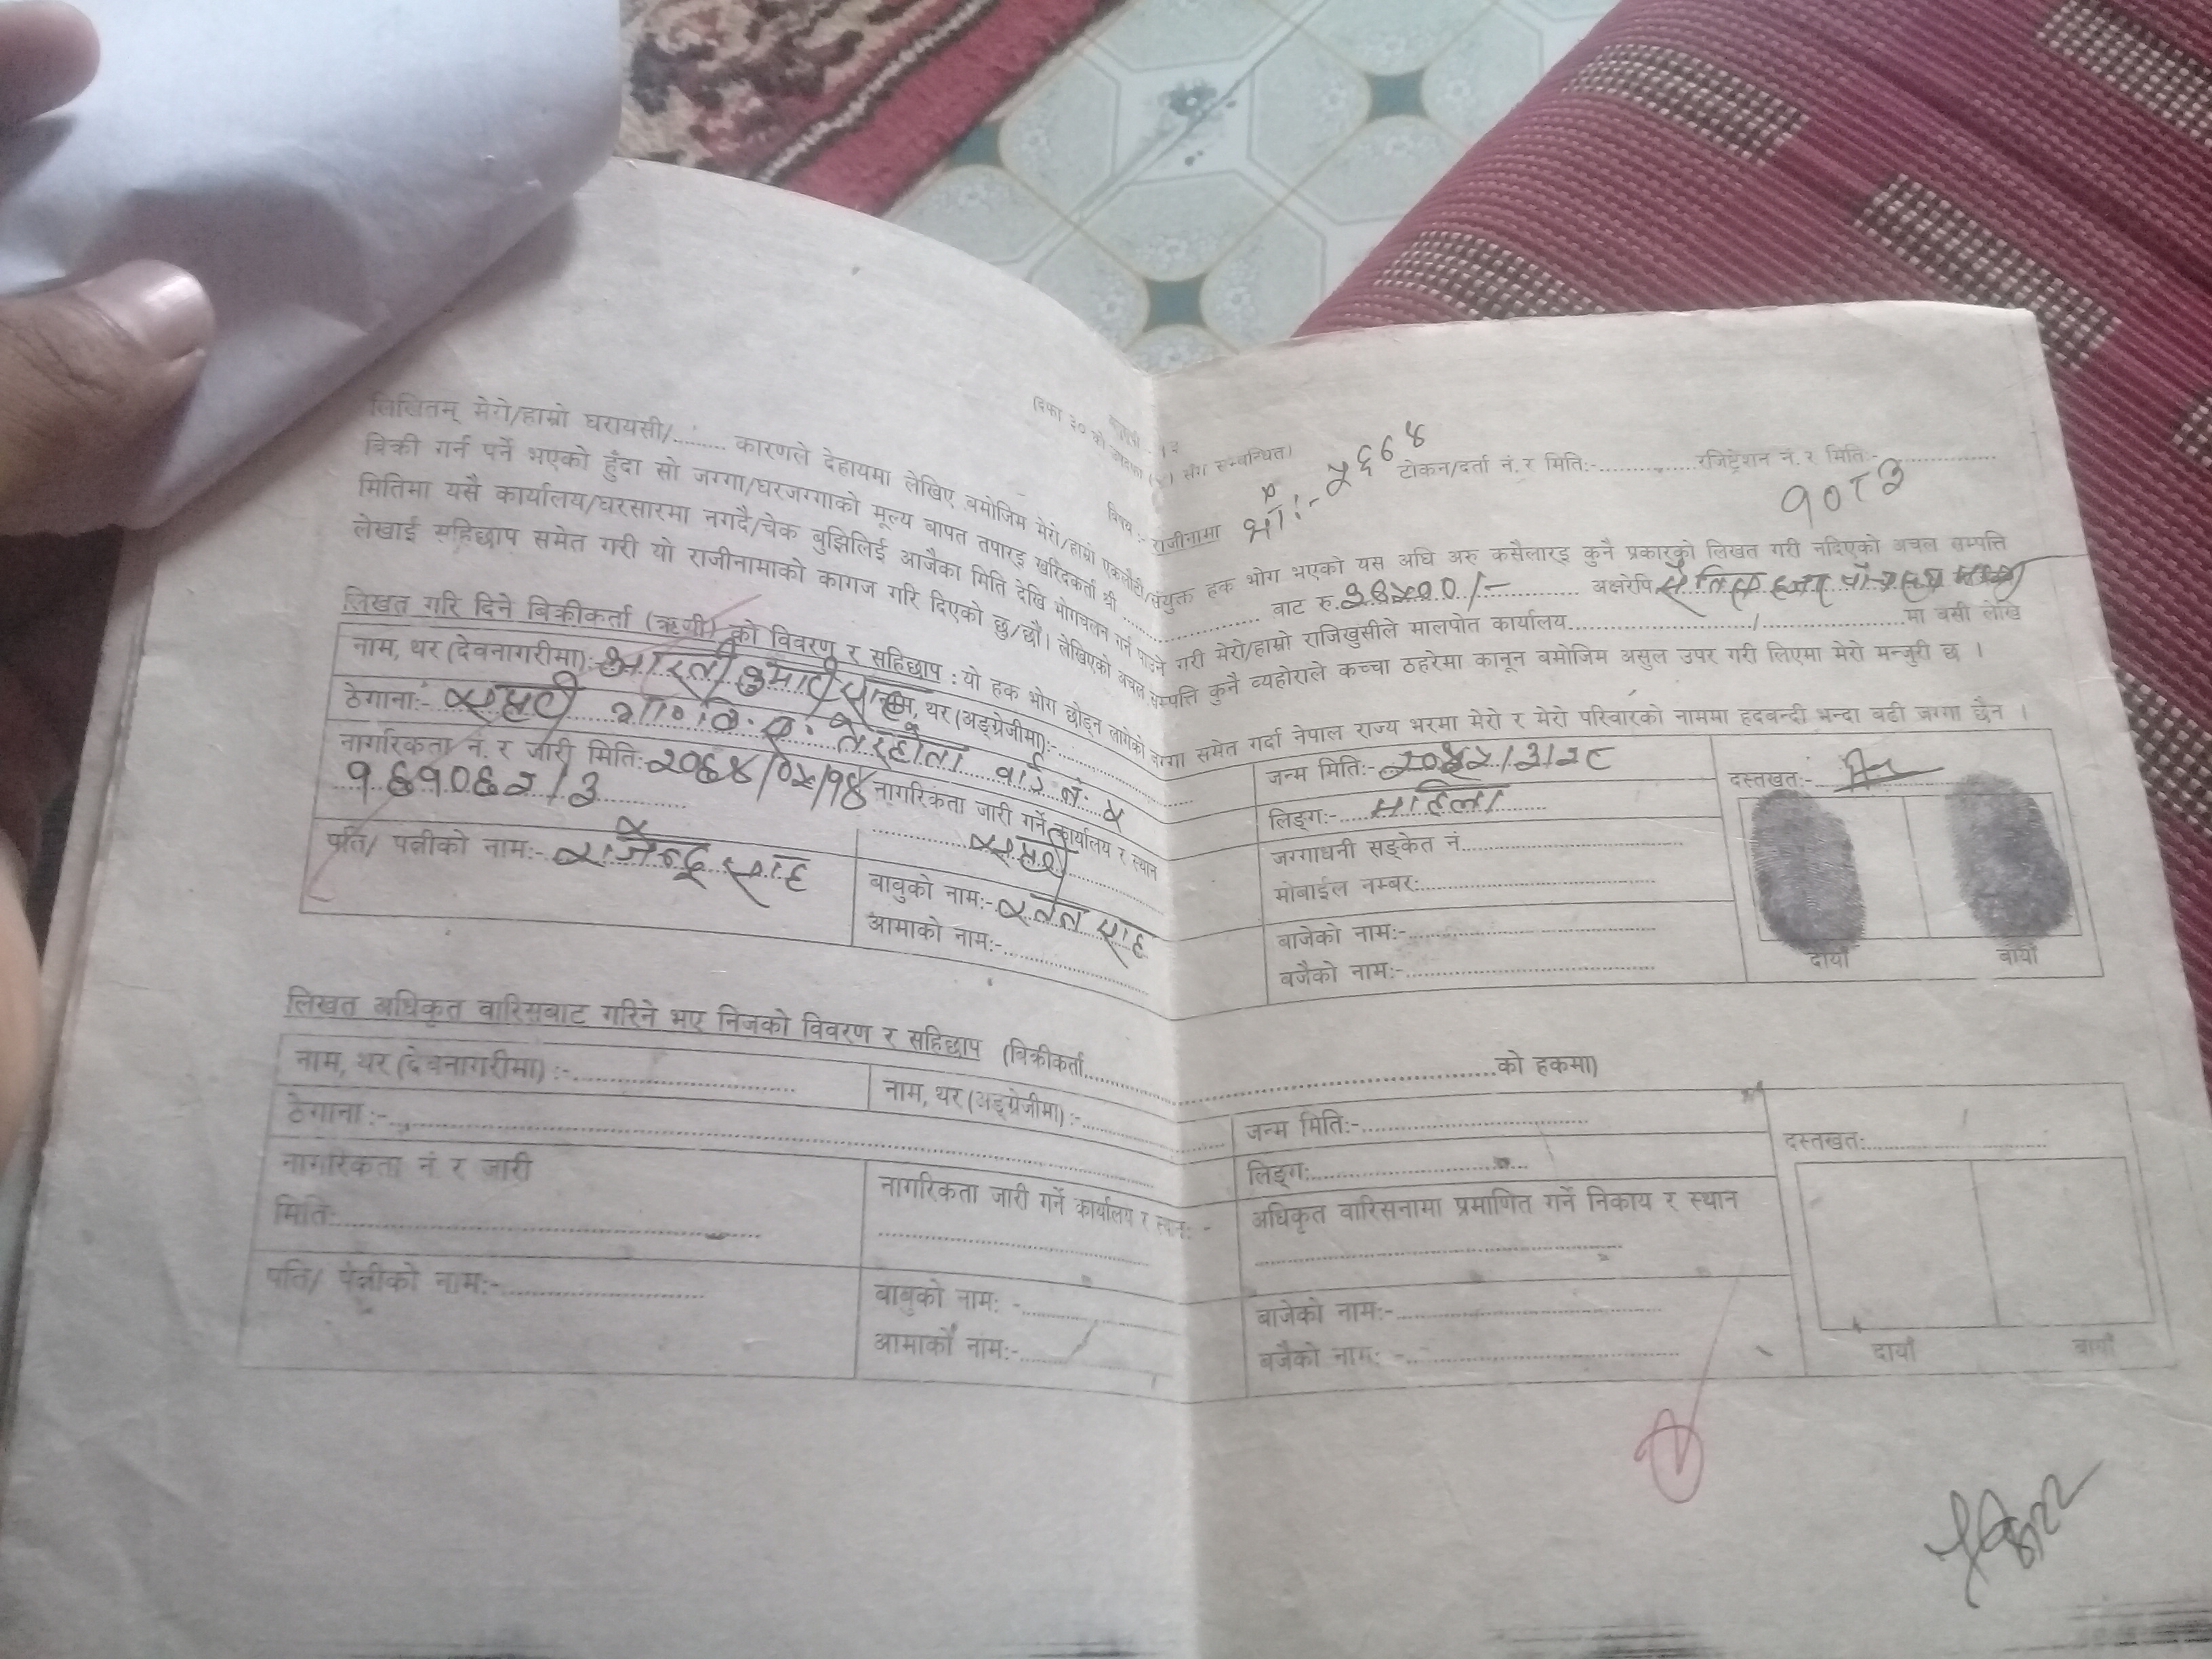 (दफा ३० को उपदफा सँग सम्बन्धित)
टोकन/दर्ता नं. र मिति:-.................रजिष्ट्रेशन नं. र मिति:-.................
१०८३
विषय :- राजीनामा
लिखितम् मेरो/हाम्रो घरायसी/......... कारणले देहायमा लेखिए बमोजिम मेरो/हाम्रो एकलौटी/संयुक्त हक भोग भएको यस अघि अरु कसैलाई कुनै प्रकारको लिखत गरी नदिएको अचल सम्पत्ति
बिक्री गर्न पर्ने भएको हुँदा सो जग्गा/घरजग्गाको मूल्य बापत तपाईं खरिदकर्ता श्री ........................ बाट रु. अक्षरेपि
मितिमा यसै कार्यालय/घरसारमा नगदै/चेक बुझिलिई आजैका मिति देखि भोगचलन गर्न पाउने गरी मेरो/हाम्रो राजिखुसीले मालपोत कार्यालय......................../.....................मा बसी लेखि
लेखाई सहिछाप समेत गरी यो राजीनामाको कागज गरि दिएको छु/छौं। लेखिएको अचल सम्पत्ति कुनै व्यहोराले कच्चा ठहरेमा कानून बमोजिम असुल उपर गरी लिएमा मेरो मन्जुरी छ ।
लिखत गरि दिने बिक्रीकर्ता (ऋणी) को विवरण र सहिछाप : यो हक भोग छोड्न लागेको जग्गा समेत गर्दा नेपाल राज्य भरमा मेरो र मेरो परिवारको नाममा हदबन्दी भन्दा बढी जग्गा छैन ।
नाम, थर (देवनागरीमा):- आरती कुमारी साह नाम, थर (अङ्ग्रेजीमा):-.................
जन्म मिति:-
दस्तखत:-
ठेगाना:- सप्तरी गा.वि.स. तेरहौता वार्ड नं. ५
लिङ्ग:- महिला
नागरिकता नं. र जारी मिति: २०६४/०५/१४
१६१०६२/३
नागरिकता जारी गर्ने कार्यालय र स्थान
सप्तरी
जग्गाधनी सङ्केत नं..............................
मोबाईल नम्बर:..............................
पति/ पत्नीको नाम:- राजेन्द्र साह
बाबुको नाम:- रतन साह
आमाको नाम:-.................
बाजेको नाम:-..............................
बजैको नाम:-..............................
दायाँ बायाँ
लिखत अधिकृत वारिसबाट गरिने भए निजको विवरण र सहिछाप (बिक्रीकर्ता............................................................को हकमा)
नाम, थर (देवनागरीमा) :-.............................. नाम, थर (अङ्ग्रेजीमा) :-.................
जन्म मिति:-..............................
दस्तखत:..............................
ठेगाना :-............................................................
लिङ्ग:..............................
नागरिकता नं. र जारी
मिति:..............................
नागरिकता जारी गर्ने कार्यालय र स्थान: -
..............................
अधिकृत वारिसनामा प्रमाणित गर्ने निकाय र स्थान
..............................
पति/ पत्नीको नाम:-..............................
बाबुको नाम: -.................
आमाको नाम:-.................
बाजेको नाम:-..............................
बजैको नाम: -..............................
दायाँ बायाँ